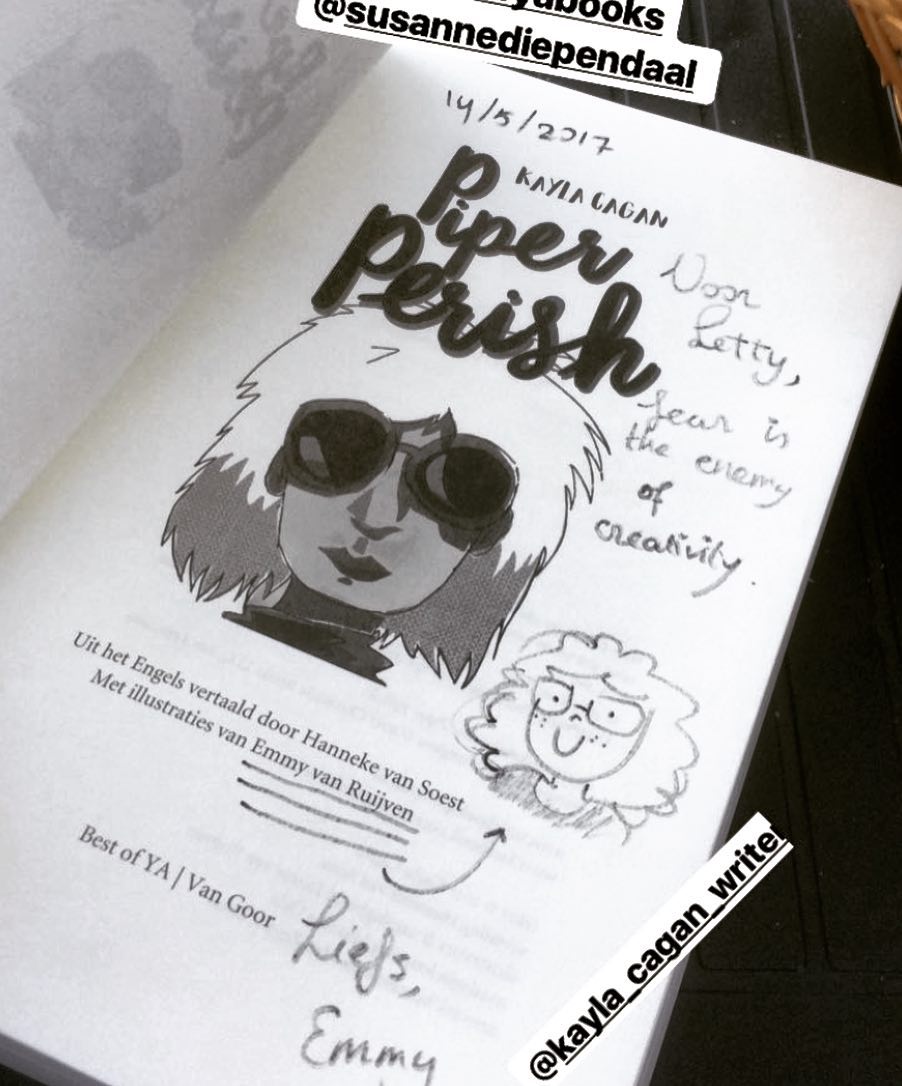 @susannediependaal
14/5/2017
KAYLA CAGAN
Piper
Perish
Voor
Letty,
fear is
the enemy
of
creativity.
Uit het Engels vertaald door Hanneke van Soest
Met illustraties van Emmy van Ruijven
Best of YA | Van Goor
Liefs,
Emmy
@kayla_cagan_writer